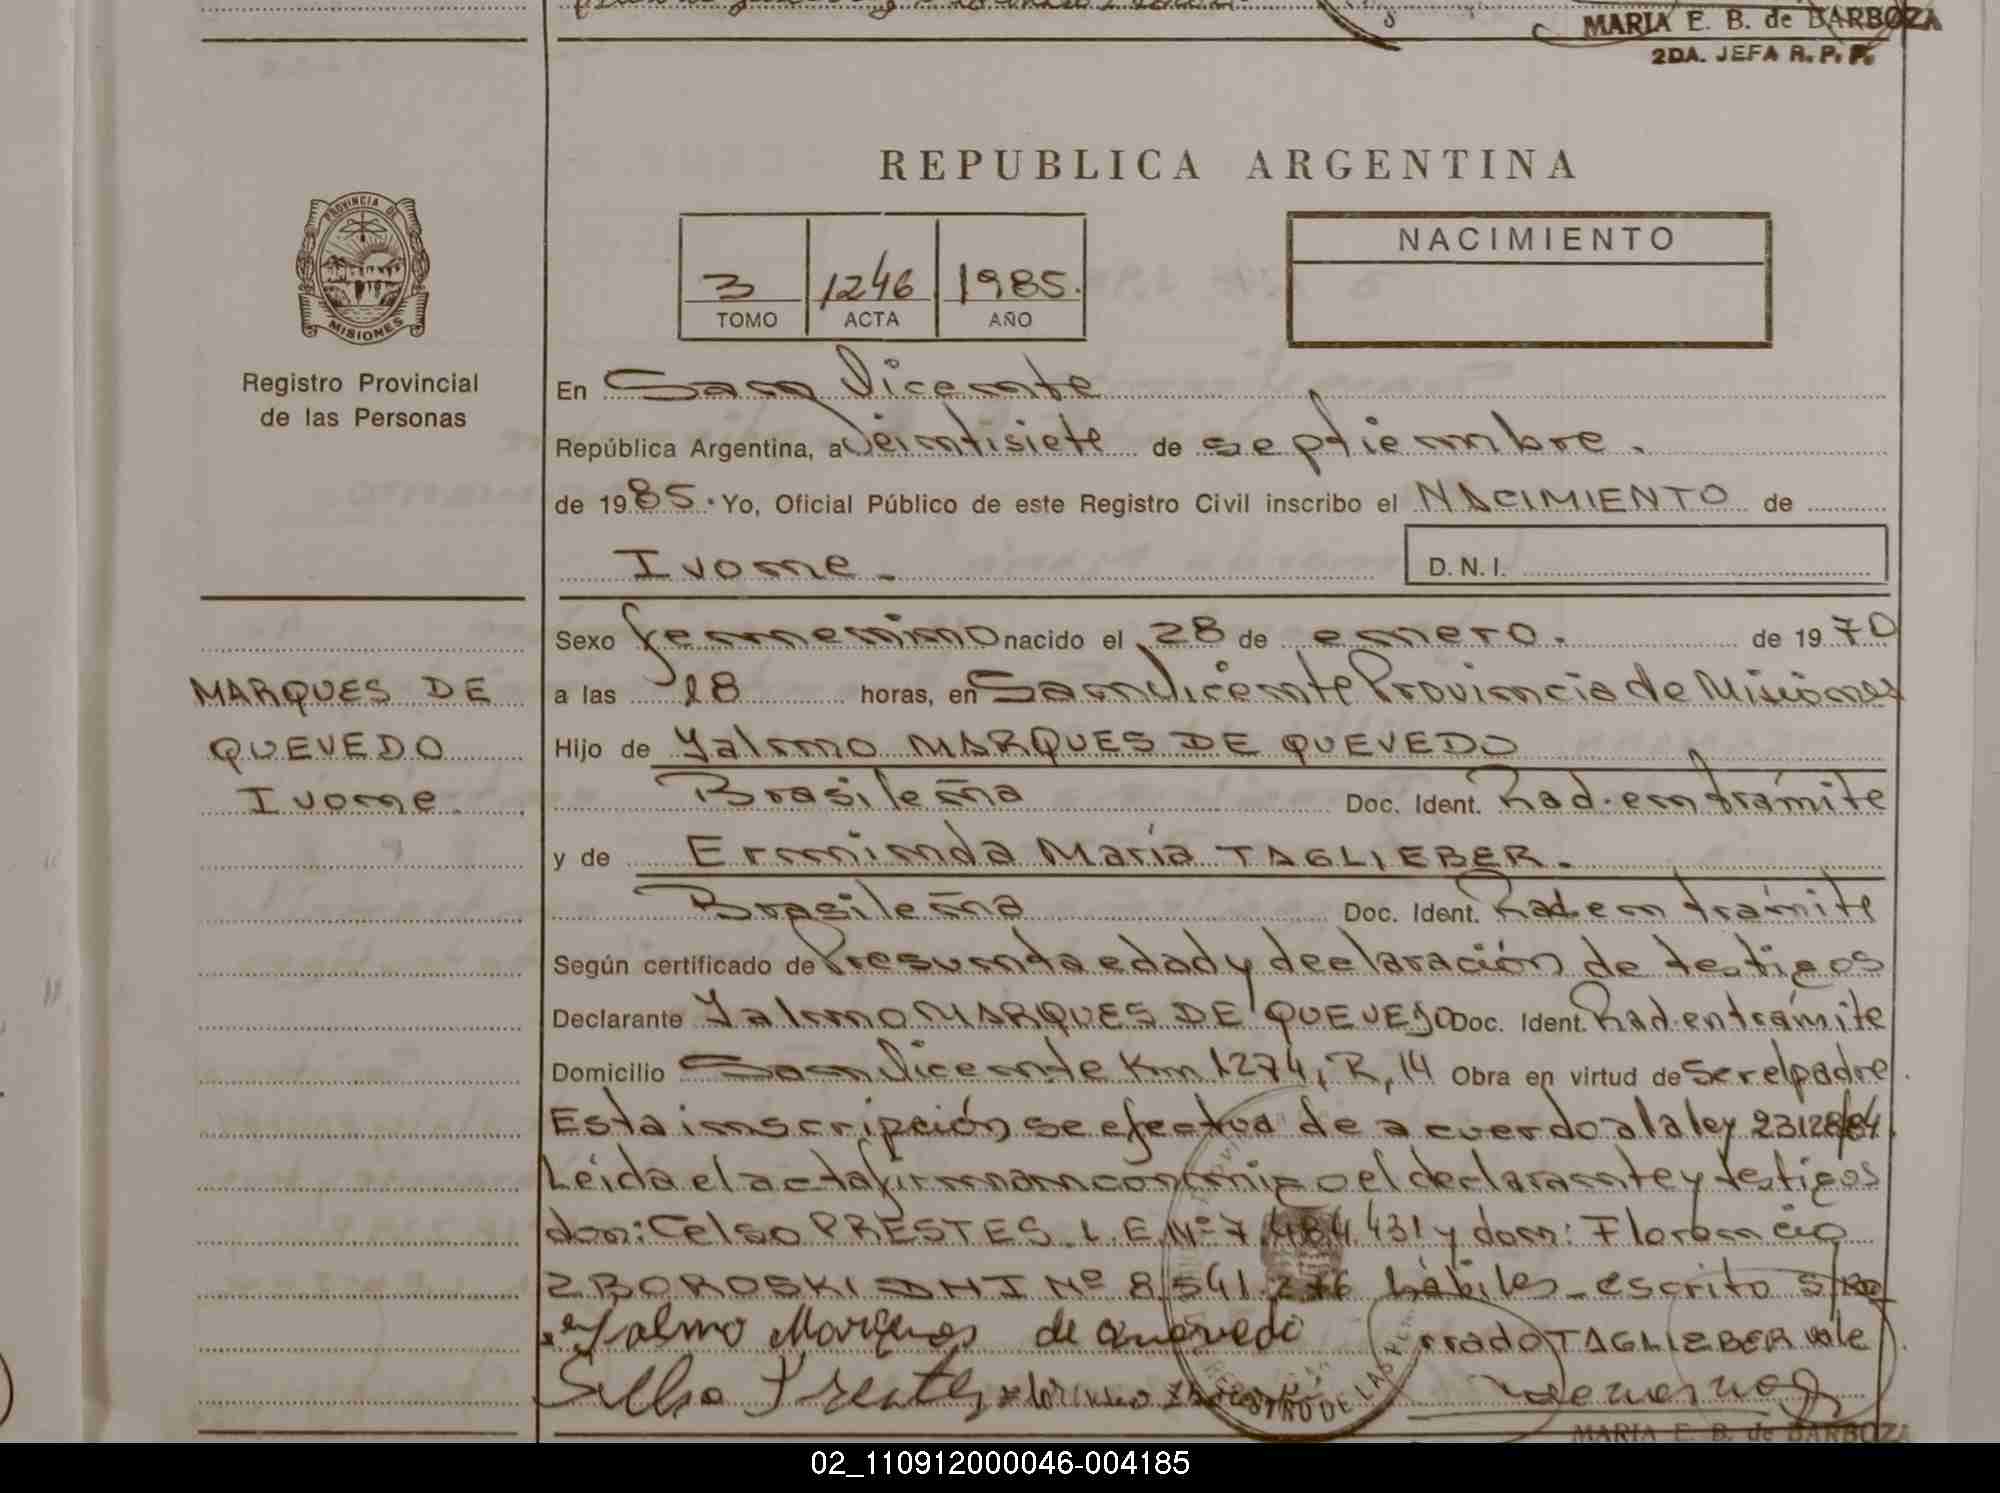 MARIA E. B. de BARBOZA
2DA. JEFA R. P. P.
REPUBLICA ARGENTINA
PROVINCIA DE
MISIONES
Registro Provincial
de las Personas
3 1246 1985.
TOMO ACTA AÑO
NACIMIENTO
En San Vicente
República Argentina, a Veintisiete de septiembre.
de 1985. Yo, Oficial Público de este Registro Civil inscribo el NACIMIENTO de
Ivone.
D. N. I.
MARQUES DE
QUEVEDO
Ivone.
Sexo femenino nacido el 28 de enero. de 1970
a las 18 horas, en San Vicente Provincia de Misiones
Hijo de Yalmo MARQUES DE QUEVEDO
Brasileña Doc. Ident. Rad. en trámite
y de Erminda María TAGLIEBER.
Brasileña Doc. Ident. Rad. en trámite
Según certificado de Presunta edad y declaración de testigos
Declarante Yalmo MARQUES DE QUEVEDO Doc. Ident. Rad. en trámite
Domicilio San Vicente Km 1274, R, 14 Obra en virtud de ser el padre
Esta inscripción se efectua de acuerdo a la ley 23128/84.
Leída el acta firman conmigo el declarante y testigos
don: Celso PRESTES. L. E. Nº 7.484.431 y don: Florencio
ZBOROSKI DNI Nº 8.541.276 hábiles - escrito s/ra
Yalmo Marques de Quevedo rrado TAGLIEBER vale
MARIA E. B. de BARBOZA
02_110912000046-004185